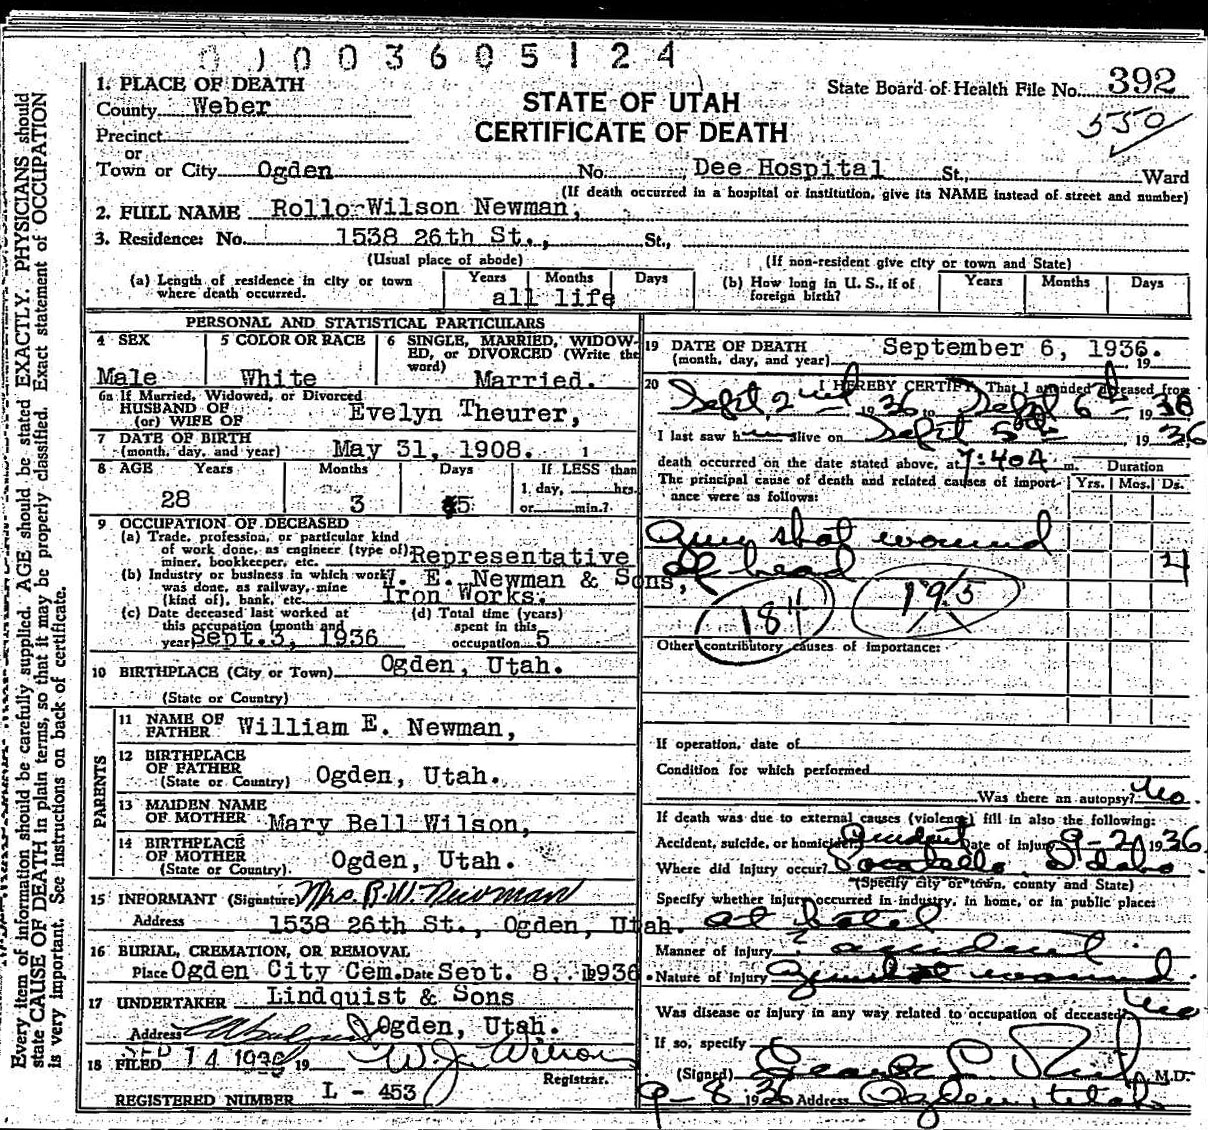 0 0 0 3 6 0 5 1 2 4
1. PLACE OF DEATH
County Weber
STATE OF UTAH
CERTIFICATE OF DEATH
State Board of Health File No. 392
550
Precinct
or
Town or City Ogden No. Dee Hospital St., Ward
(If death occurred in a hospital or institution, give its NAME instead of street and number)
2. FULL NAME Rollo Wilson Newman,
3. Residence: No. 1538 26th St., St.,
(Usual place of abode) (If non-resident give city or town and State)
(a) Length of residence in city or town where death occurred. Years Months Days
all life
(b) How long in U. S., if of foreign birth? Years Months Days
PERSONAL AND STATISTICAL PARTICULARS
4 SEX 5 COLOR OR RACE 6 SINGLE, MARRIED, WIDOW-
ED, or DIVORCED (Write the
word)
Male White Married.
6a If Married, Widowed, or Divorced
HUSBAND OF
(or) WIFE OF Evelyn Theurer,
7 DATE OF BIRTH
(month, day, and year) May 31, 1908.
8 AGE Years Months Days If LESS than
1 day, hrs.
or min.?
28 3 5
9 OCCUPATION OF DECEASED
(a) Trade, profession, or particular kind
of work done, as engineer (type of)
miner, bookkeeper, etc. Representative
(b) Industry or business in which work
was done, as railway, mine
(kind of), bank, etc. J. E. Newman & Sons,
Iron Works.
(c) Date deceased last worked at
this occupation (month and
year) Sept. 3, 1936
(d) Total time (years)
spent in this
occupation 5
10 BIRTHPLACE (City or Town) Ogden, Utah.
(State or Country)
PARENTS
11 NAME OF
FATHER William E. Newman,
12 BIRTHPLACE
OF FATHER
(State or Country) Ogden, Utah.
13 MAIDEN NAME
OF MOTHER Mary Bell Wilson,
14 BIRTHPLACE
OF MOTHER
(State or Country). Ogden, Utah.
15 INFORMANT (Signature) Mrs. R. W. Newman
Address 1538 26th St., Ogden, Utah.
16 BURIAL, CREMATION, OR REMOVAL
Place Ogden City Cem. Date Sept. 8, 1936
17 UNDERTAKER Lindquist & Sons
Address Ogden, Utah.
18 FILED SEP 14 1936 19 W. J. Wilson
Registrar.
REGISTERED NUMBER L - 453
19 DATE OF DEATH
(month, day, and year) September 6, 1936. 19
20 I HEREBY CERTIFY, That I attended deceased from
Sept 2nd 1936 to Sept 6th 1936
I last saw him alive on Sept 5th 1936
death occurred on the date stated above, at 7:40A m. Duration
The principal cause of death and related causes of import-
ance were as follows: Yrs. Mos. Ds.
Gun shot wound
of head 4
184 195
Other contributory causes of importance:
If operation, date of
Condition for which performed
Was there an autopsy? No.
If death was due to external causes (violence) fill in also the following:
Accident, suicide, or homicide? Accident Date of injury 9-2 1936
Where did injury occur? Pocatello Idaho
(Specify city or town, county and State)
Specify whether injury occurred in industry, in home, or in public place:
at hotel
Manner of injury ? accident
Nature of Injury Gunshot wound.
Was disease or injury in any way related to occupation of deceased? No
If so, specify
(Signed) George M.D.
9-8 1936 Address Ogden, Utah
Every item of information should be carefully supplied. AGE should be stated EXACTLY. PHYSICIANS should
state CAUSE OF DEATH in plain terms, so that it may be properly classified. Exact statement of OCCUPATION
is very important. See instructions on back of certificate.